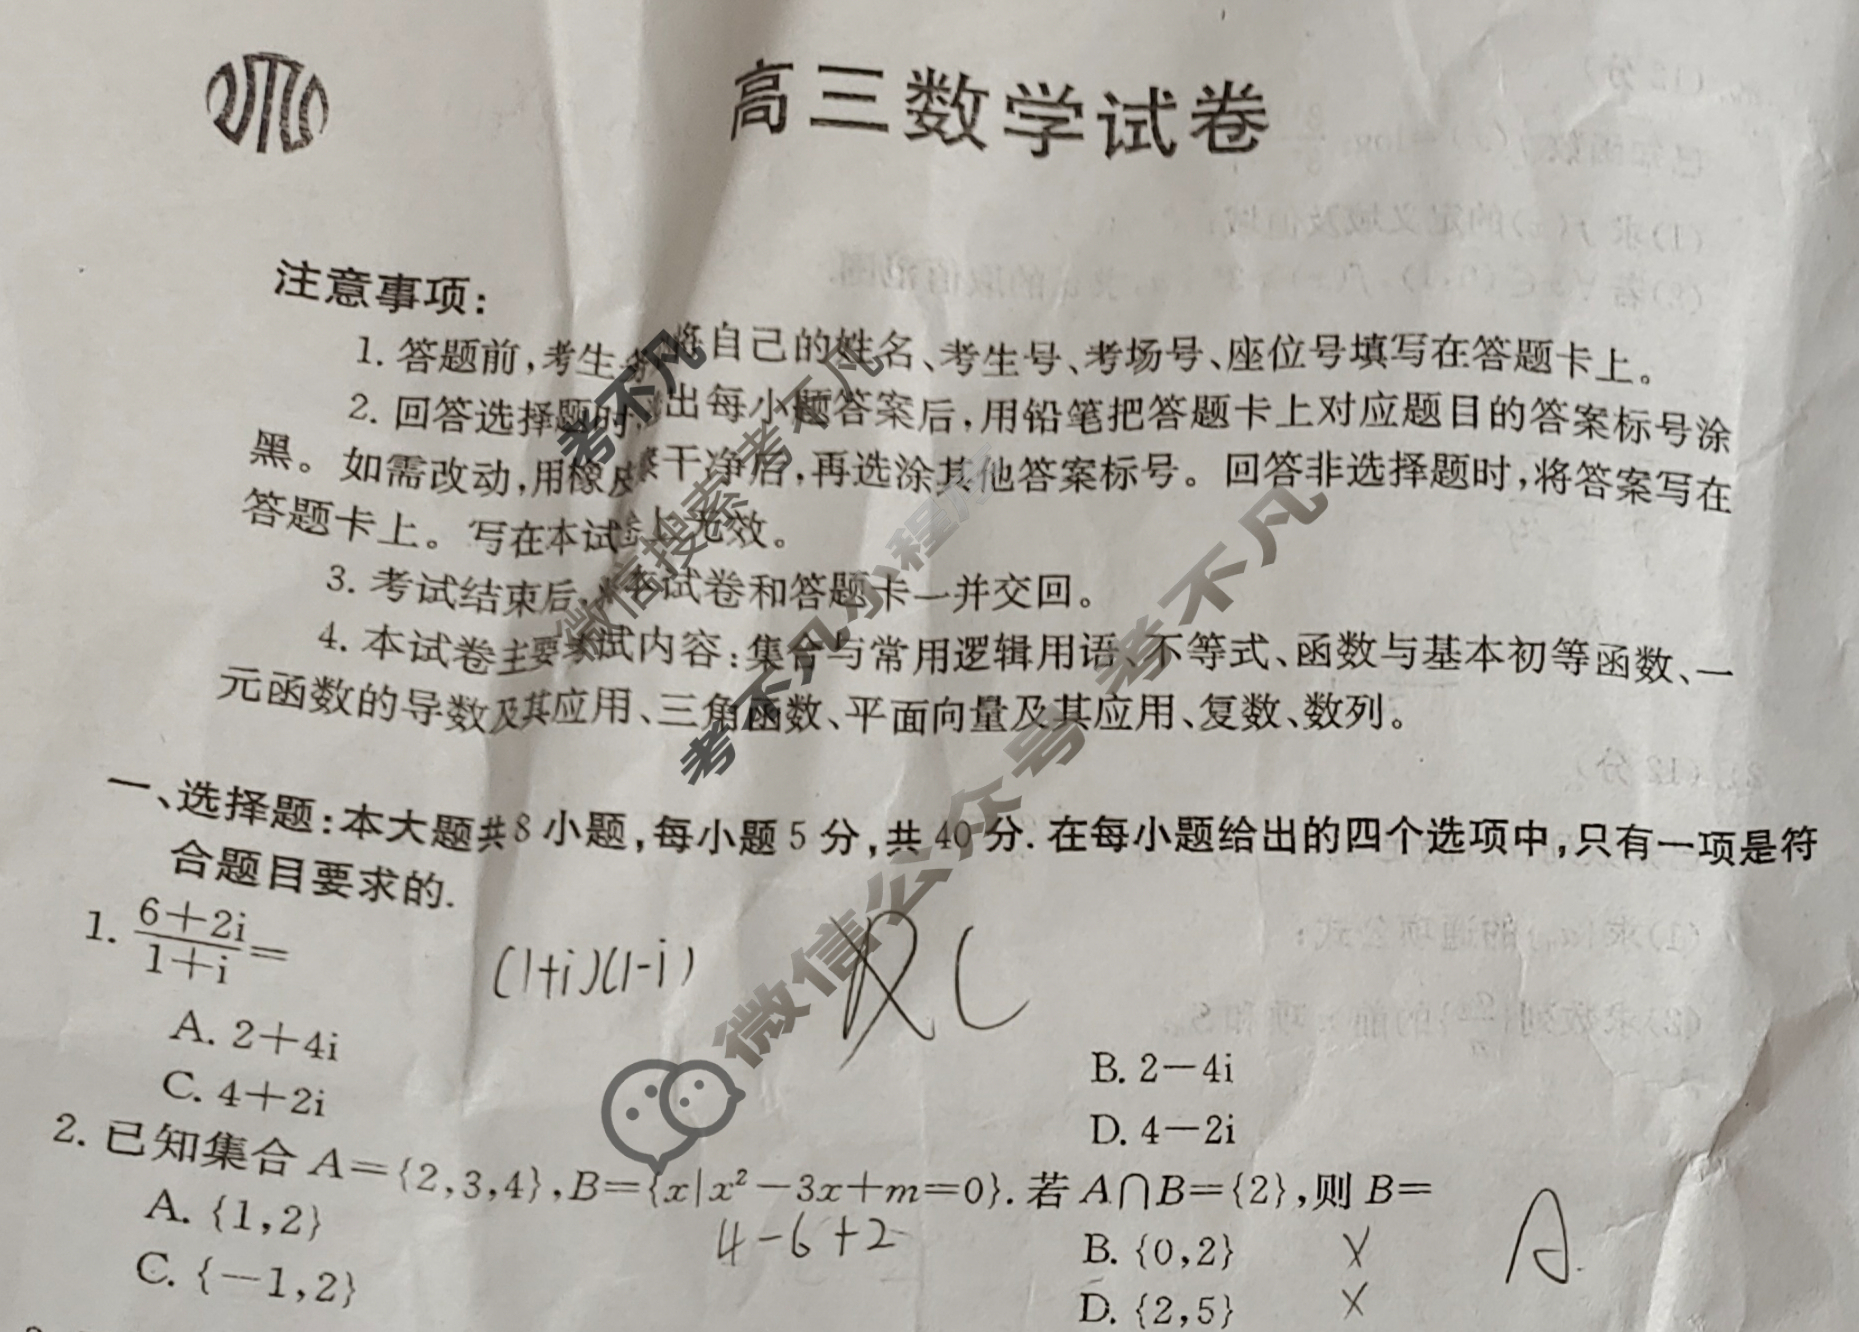 高三数学试卷
注意事项:
1. 答题前,考生务将自己的姓名、考生号、考场号、座位号填写在答题卡上。
2. 回答选择题时,出每小题答案后,用铅笔把答题卡上对应题目的答案标号涂
黑。如需改动,用橡皮擦干净后,再选涂其他答案标号。回答非选择题时,将答案写在
答题卡上。写在本试卷上无效。
3. 考试结束后,将本试卷和答题卡一并交回。
4. 本试卷主要考试内容:集合与常用逻辑用语、不等式、函数与基本初等函数、一
元函数的导数及其应用、三角函数、平面向量及其应用、复数、数列。
一、选择题:本大题共8小题,每小题5分,共40分. 在每小题给出的四个选项中,只有一项是符
合题目要求的.
1. \frac{6+2i}{1+i}=
(1+i)(1-i)
C
A. 2+4i
B. 2-4i
C. 4+2i
D. 4-2i
2. 已知集合 A={2,3,4},B={x|x²-3x+m=0}. 若 A∩B={2},则 B=
4-6+2
A. {1,2}
B. {0,2} X
A.
C. {-1,2}
D. {2,5} X
考不凡
微信搜索考不凡
考不凡小程序
微信公众号考不凡